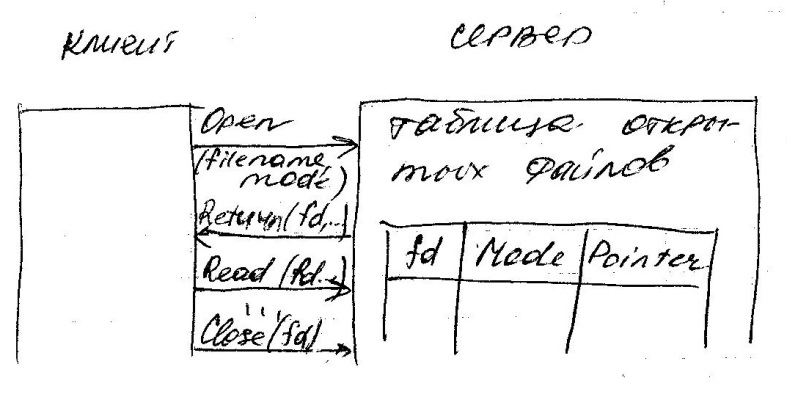 Клиент
Сервер
Open
(filename,
mode)
Return(fd,..)
Read (fd..)
...
Close(fd)
таблица откры-
тых файлов
fd Mode Pointer